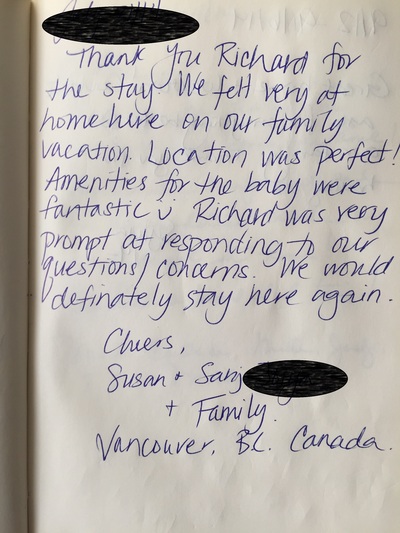 Thank you Richard for
the stay. We felt very at
home here on our family
vacation. Location was perfect!
Amenities for the baby were
fantastic ü Richard was very
prompt at responding to our
questions/concerns. We would
definately stay here again.
Cheers,
Susan + Sanj
+ Family.
Vancouver, BC. Canada.